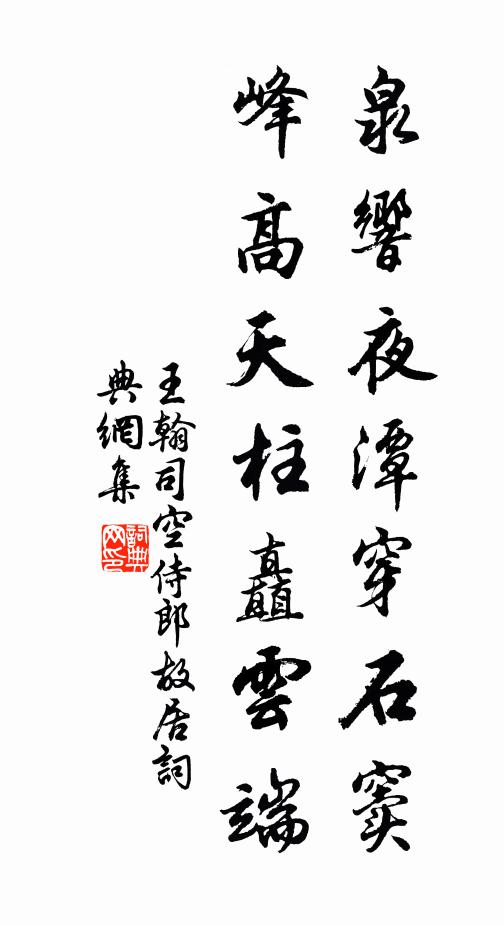 泉響夜潭穿石竇
峰高天柱矗雲端
王翰司空侍郎故居詞
典網集
詞典網印